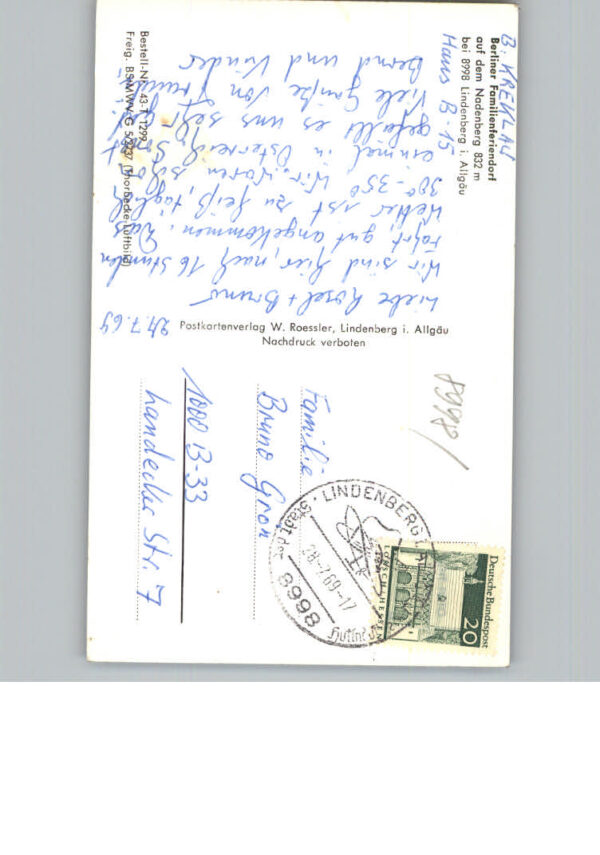 B. KREKLAU
Berliner Familienferiendorf
auf dem Nadenberg 832 m
bei 8998 Lindenberg i. Allgäu
Haus B-15
24.7.69
Liebe Rosel + Bruno
Wir sind hier, nach 16 Stunden
Fahrt, gut angekommen. Das
Wetter ist zu heiß, täglich
30°-35° Wir waren schon
einmal in Österreich
gefällt es uns sehr
Viele Grüße von
Bernd und Kinder
Bestell-Nr. 43-T-1299
Freig. BStMWV-G 5/2737 (Thorbecke-Luftbild)
Postkartenverlag W. Roessler, Lindenberg i. Allgäu
Nachdruck verboten
8998/
Familie
Bruno Gron
1000 B-33
Landecker Str. 7
LINDENBERG
Stadt der
28.-7.69-17
8998
Deutsche Bundespost
20
LORSCH/HESSEN